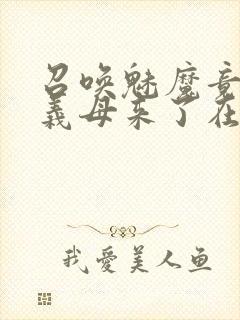 召唤魅魔竟
义母来了在
我爱美人鱼